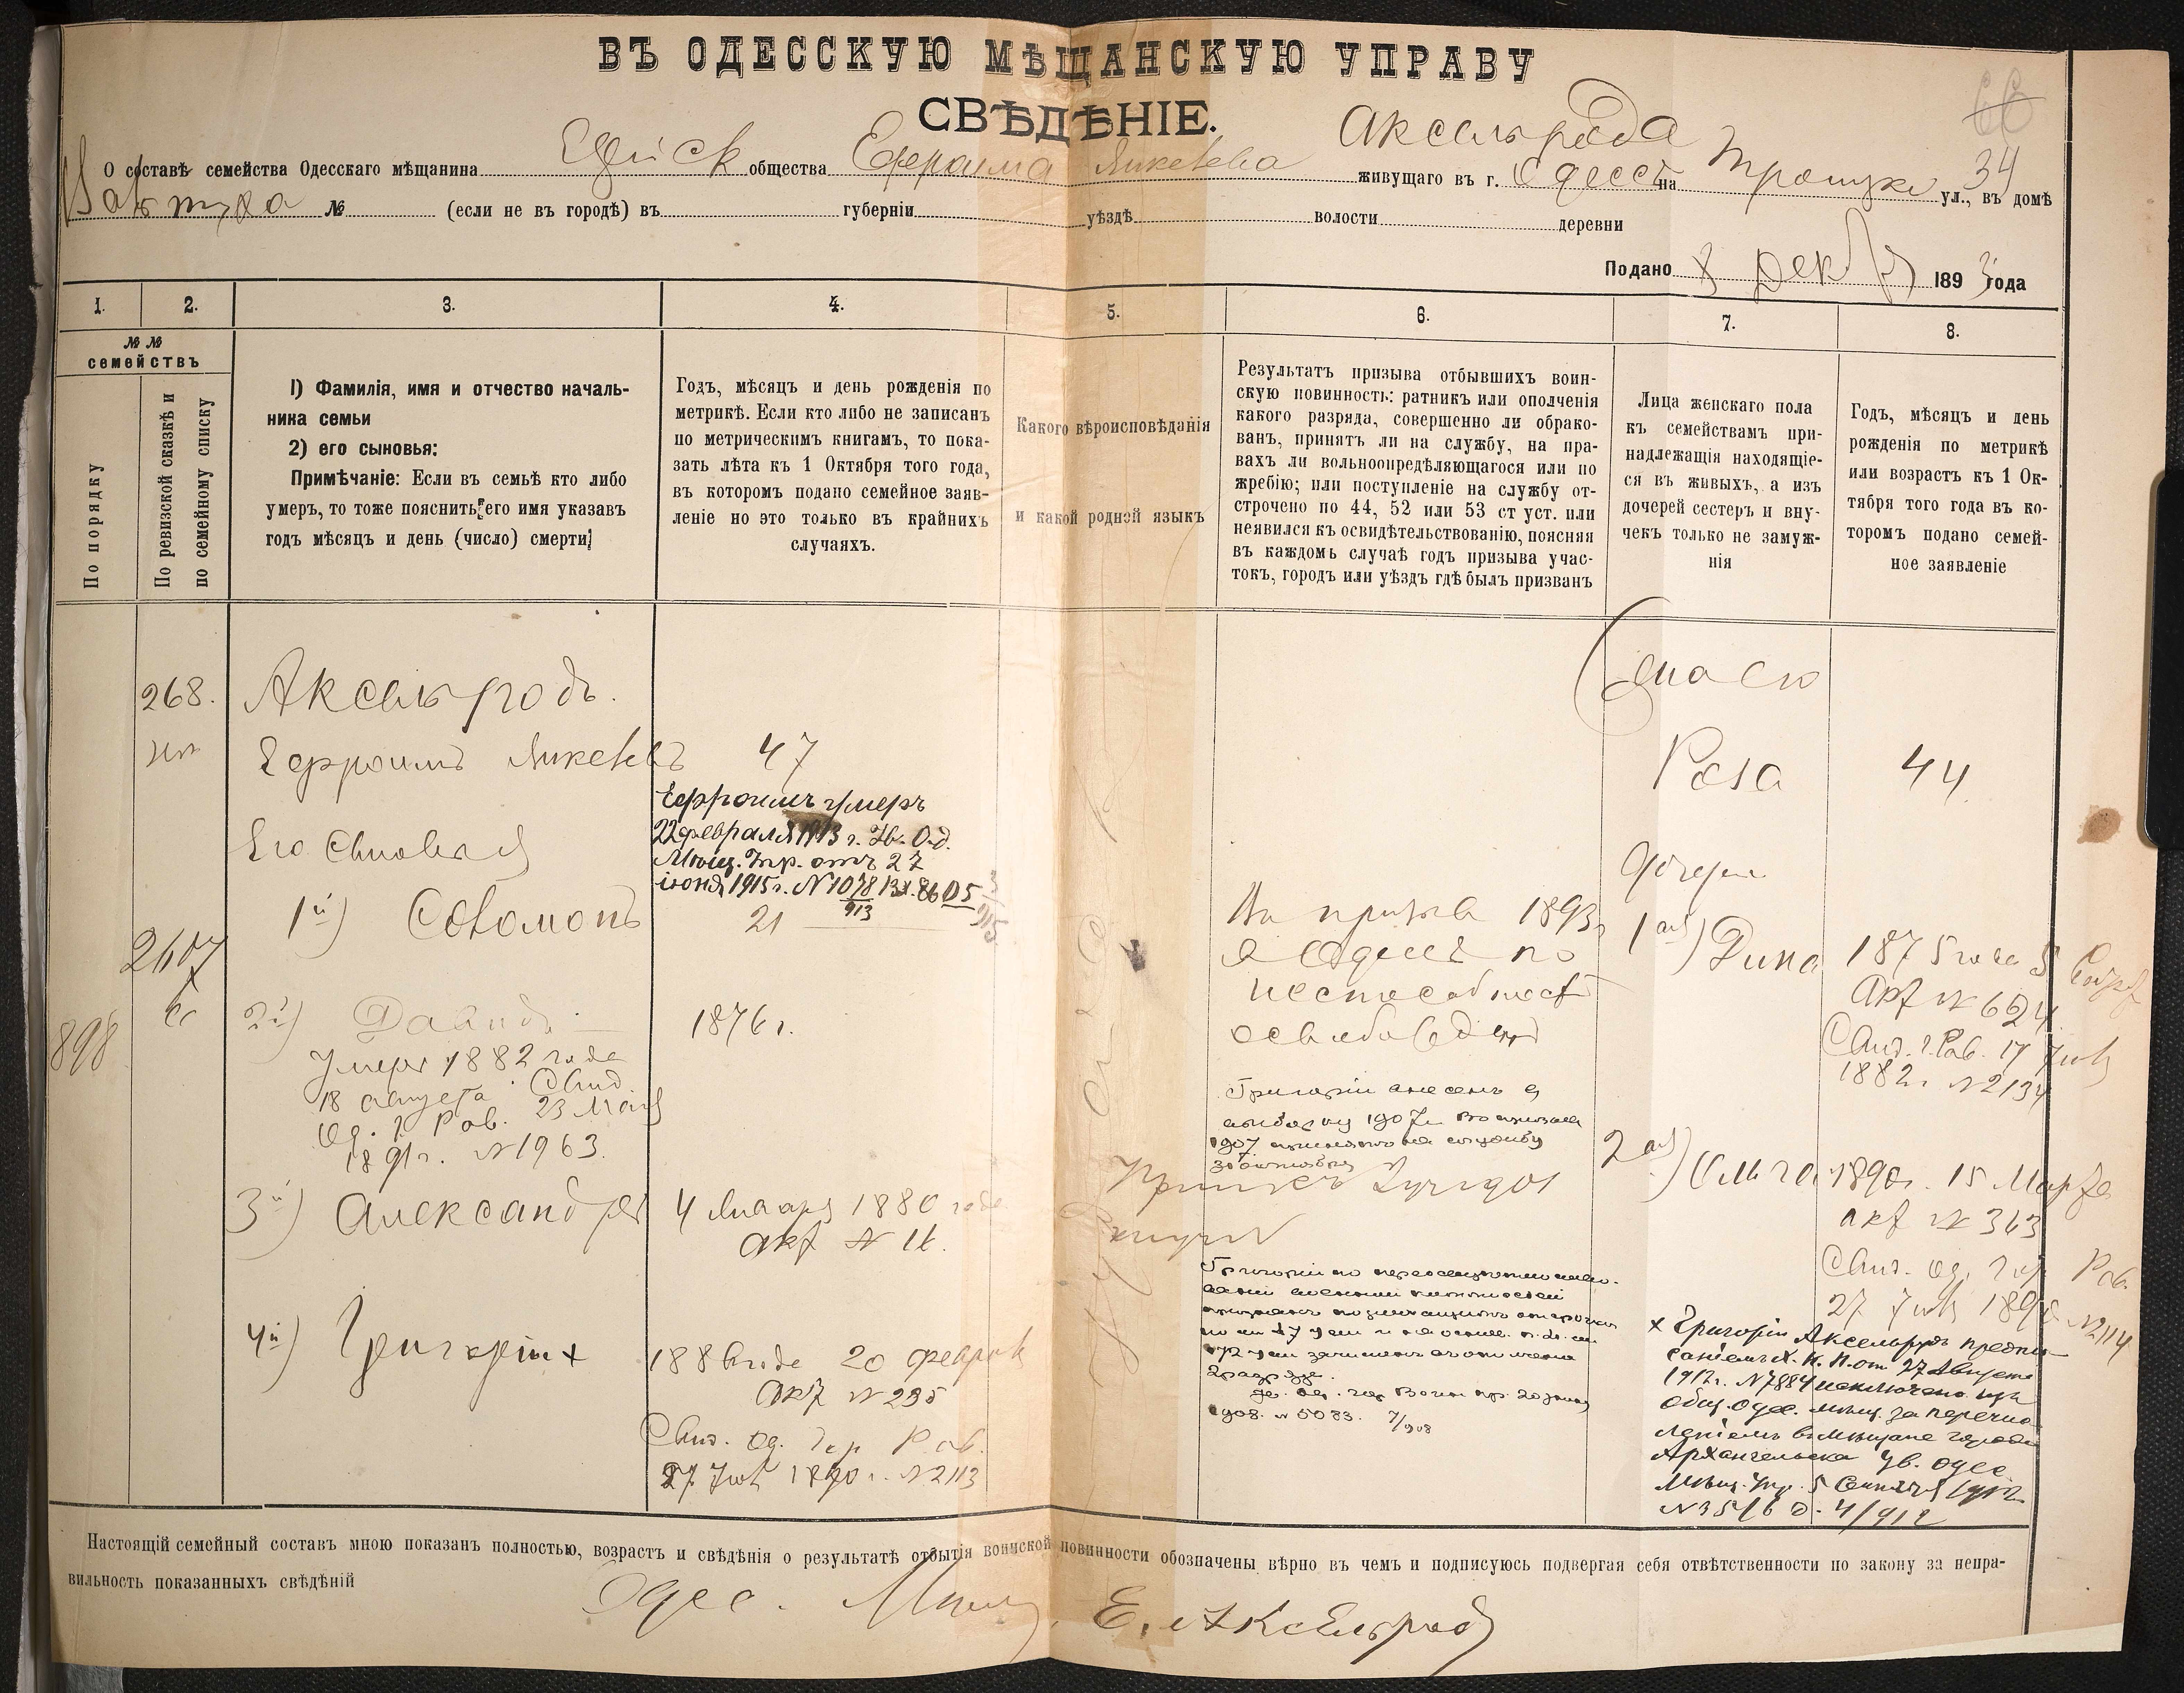 ВЪ ОДЕССКУЮ МѢЩАНСКУЮ УПРАВУ
СВѢДѢНІЕ.
О составѣ семейства Одесскаго мѣщанина общества Ефраима Аксельрода живущаго въ г. Одессѣ на Троицк ул., въ домѣ 34
№ (если не въ городѣ) въ губерніи уѣздѣ волости деревни
Подано 8 Декб 1893 года
1. 2. 3. 4. 5. 6. 7. 8.
№№ семействъ
По порядку
По ревизской сказкѣ и
по семейному списку
1) Фамилія, имя и отчество началь-
ника семьи
2) его сыновья:
Примѣчаніе: Если въ семьѣ кто либо
умеръ, то тоже пояснить его имя указавъ
годъ мѣсяцъ и день (число) смерти
Годъ, мѣсяцъ и день рожденія по
метрикѣ. Если кто либо не записанъ
по метрическимъ книгамъ, то пока-
зать лѣта къ 1 Октября того года,
въ которомъ подано семейное заяв-
леніе но это только въ крайнихъ
случаяхъ.
Какого вѣроисповѣданія
и какой родной языкъ
Результатъ призыва отбывшихъ воин-
скую повинность: ратникъ или ополченія
какого разряда, совершенно ли обрако-
ванъ, принятъ ли на службу, на пра-
вахъ ли вольноопредѣляющагося или по
жребію; или поступленіе на службу от-
строчено по 44, 52 или 53 ст уст. или
неявился къ освидѣтельствованію, поясняя
въ каждомъ случаѣ годъ призыва учас-
токъ, городъ или уѣздъ гдѣ былъ призванъ
Лица женскаго пола
къ семействамъ при-
надлежащія находящіе-
ся въ живыхъ, а изъ
дочерей сестеръ и вну-
чекъ только не замуж-
нія
Годъ, мѣсяцъ и день
рожденія по метрикѣ
или возрастъ къ 1 Ок-
тября того года въ ко-
торомъ подано семей-
ное заявленіе
268.
Аксельродъ.
Ефроимъ
47
Ефроимъ умеръ
22 февраля 1913 г. Ув. Од.
Мѣщ. Упр. отъ 27
іюня 1915 г. № 1078
913
Его Сыновья
1й) Соломонъ
21
2607
898
2й) Давидъ
1876 г.
Умеръ 1882 года
18 августа Свид.
Од. г. Раб. 23 Мая
1891 г. № 1963.
3й) Александръ
4 Января 1880 года
акт № 16.
4й) Григорій x
188 года 20 Февраля
Акт № 235
Свид. Од. Гор Раб.
27 1890 г. № 2113
призыва 1893 г
Одессѣ по
неспособност
освобожден
Григорій внесенъ в
1907
1907 принятъ на службу
Григорій по
2 разряда.
1908. № 5083. 7/908
Роза
44
дочери
1ая) Дина
1875 года 5
Акт № 624
Свид. г. Раб. 17
1882 г. № 2134
2ая) Ольга
1890 г. 15 Марта
акт № 363
Свид. Од. Гор Раб.
27 1890 № 2114
x Григорій Аксельродъ предпи-
саніемъ Х. К. П. от 27 Августа
1912 г. № 7884 исключенъ изъ
общ. Одес. мѣщ. за перечис-
леніемъ въ мѣщане города
Архангельска Ув. Одес.
Мѣщ. Упр. 5 Сентября 1912
№ 3516 д. 4/912
Настоящій семейный составъ мною показанъ полностью, возрастъ и свѣдѣнія о результатѣ отбытія воинской повинности обозначены вѣрно въ чемъ и подписуюсь подвергая себя отвѣтственности по закону за непра-
вильность показанныхъ свѣдѣній
Одес. Мѣщ. Е. Аксельродъ